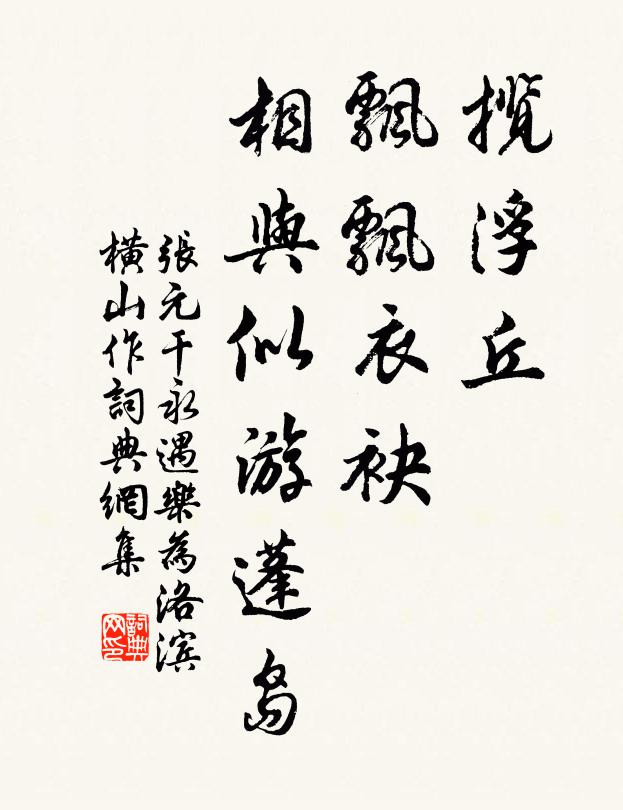 攬浮丘
飄飄衣袂
相與似游蓬島
張元干永遇樂為洛濱
橫山作詞典網集
詞典网印